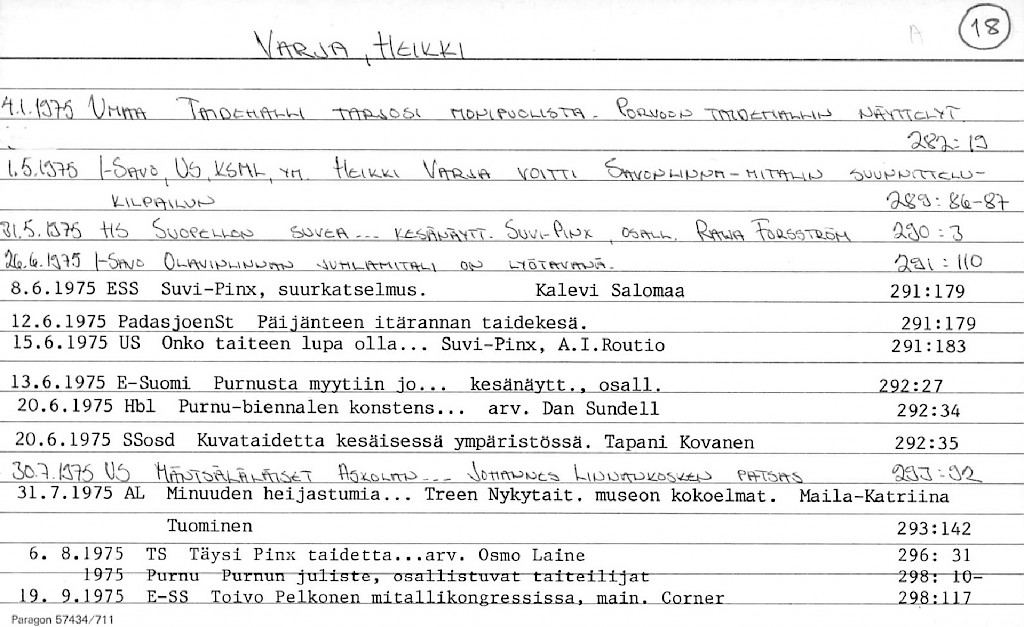 A 18
VARJA, HEIKKI
4.1.1975 UMAA TAIDEHALLI TARJOSI MONIPUOLISTA. PORVOON TAIDEHALLIN NÄYTTELYT.
282:19
1.5.1975 I-SAVO, US, KSML, YM. HEIKKI VARJA VOITTI SAVONLINNA-MITALIN SUUNNITTELU-
KILPAILUN 289:86-87
31.5.1975 HS SUOPELLON SUVEA... KESÄNÄYTT. SUVI-PINX, OSALL. RAIJA FORSSTRÖM 290:3
26.6.1975 I-SAVO OLAVINLINNAN JUHLAMITALI ON LYÖTÄVÄNÄ. 291:110
8.6.1975 ESS Suvi-Pinx, suurkatselmus. Kalevi Salomaa 291:179
12.6.1975 PadasjoenSt Päijänteen itärannan taidekesä. 291:179
15.6.1975 US Onko taiteen lupa olla... Suvi-Pinx, A.I.Routio 291:183
13.6.1975 E-Suomi Purnusta myytiin jo... kesänäytt., osall. 292:27
20.6.1975 Hbl Purnu-biennalen konstens... arv. Dan Sundell 292:34
20.6.1975 SSosd Kuvataidetta kesäisessä ympäristössä. Tapani Kovanen 292:35
30.7.1975 US MÄNTSÄLÄLÄISET ASKOLAN... JOHANNES LINNANKOSKEN PATSAS 293:92
31.7.1975 AL Minuuden heijastumia... Treen Nykytait. museon kokoelmat. Maila-Katriina
Tuominen 293:142
6. 8.1975 TS Täysi Pinx taidetta...arv. Osmo Laine 296: 31
1975 Purnu Purnun juliste, osallistuvat taiteilijat 298: 10-
19. 9.1975 E-SS Toivo Pelkonen mitallikongressissa, main. Corner 298:117
Paragon 57434/711